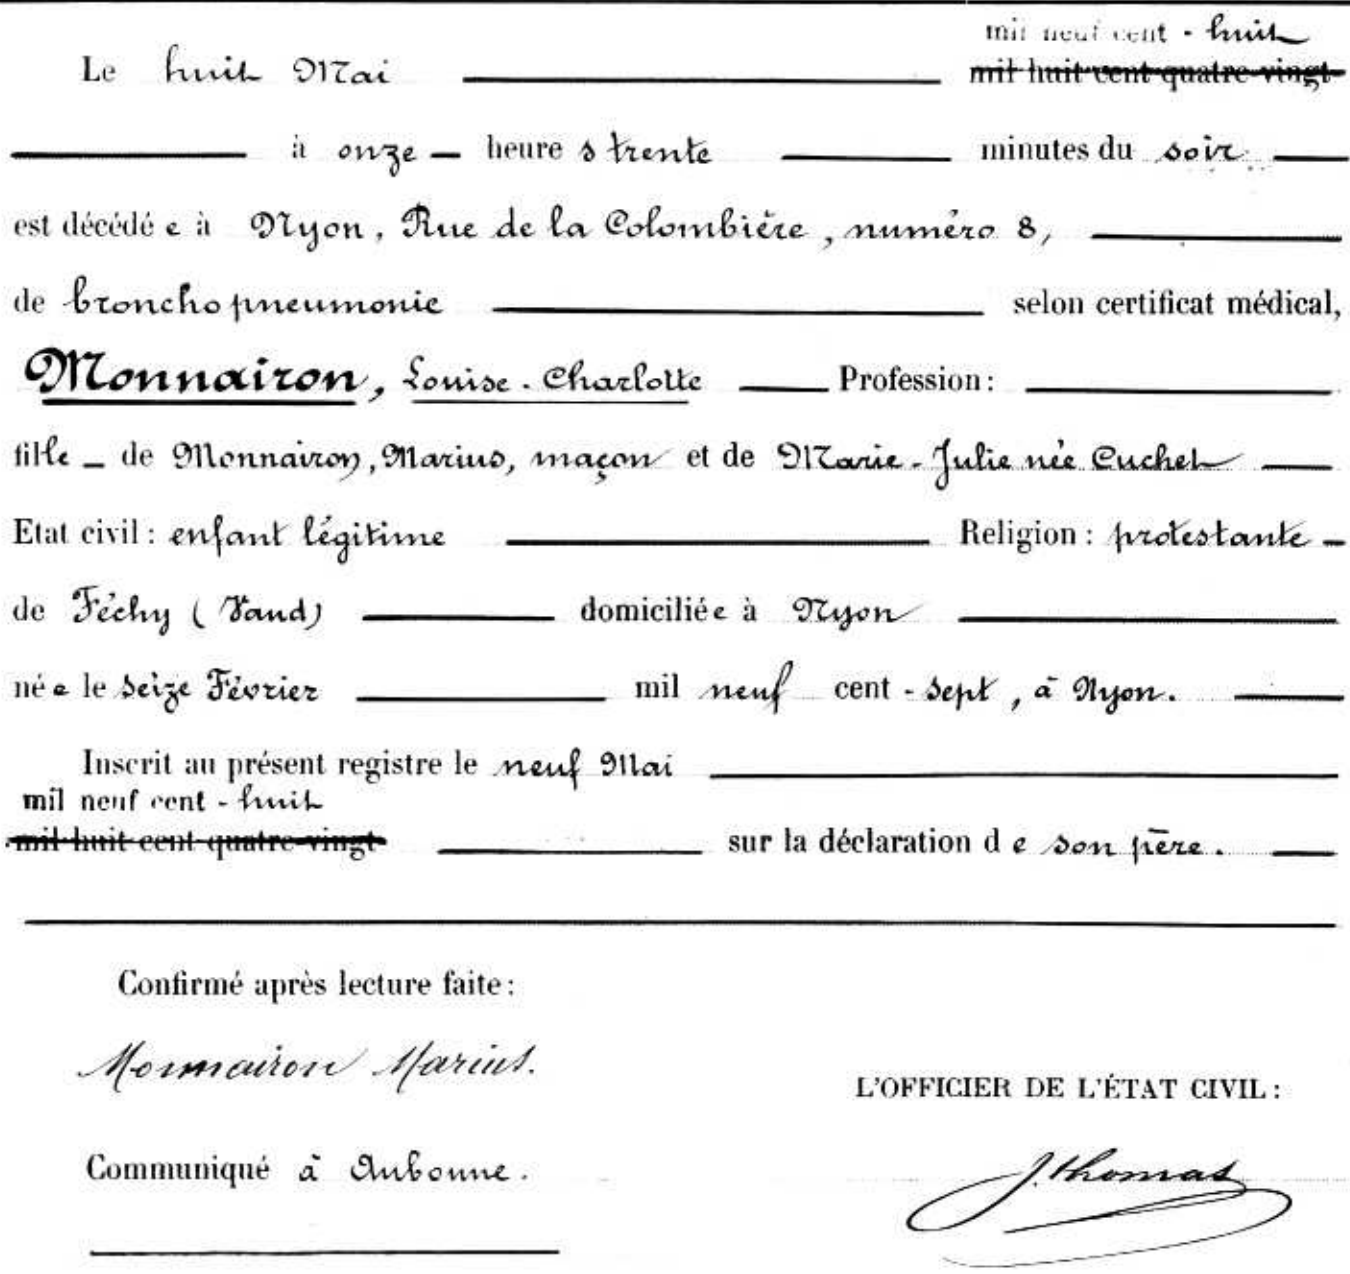 mil neuf cent - huit
Le huit Mai mil huit cent quatre-vingt
à onze heures trente minutes du soir
est décédée à Nyon, Rue de la Colombière, numéro 8,
de bronchopneumonie selon certificat médical,
Monnairon, Louise-Charlotte Profession:
fille de Monnairon, Marius, maçon et de Marie-Julie née Cuchet
Etat civil: enfant légitime Religion: protestante
de Féchy (Vaud) domiciliée à Nyon
née le seize Février mil neuf cent-sept, à Nyon.
Inscrit au présent registre le neuf Mai
mil neuf cent - huit
mil huit cent quatre-vingt sur la déclaration de son père.
Confirmé après lecture faite:
Monnairon Marius.
L'OFFICIER DE L'ÉTAT CIVIL:
Communiqué à Aubonne.
J. Thomas